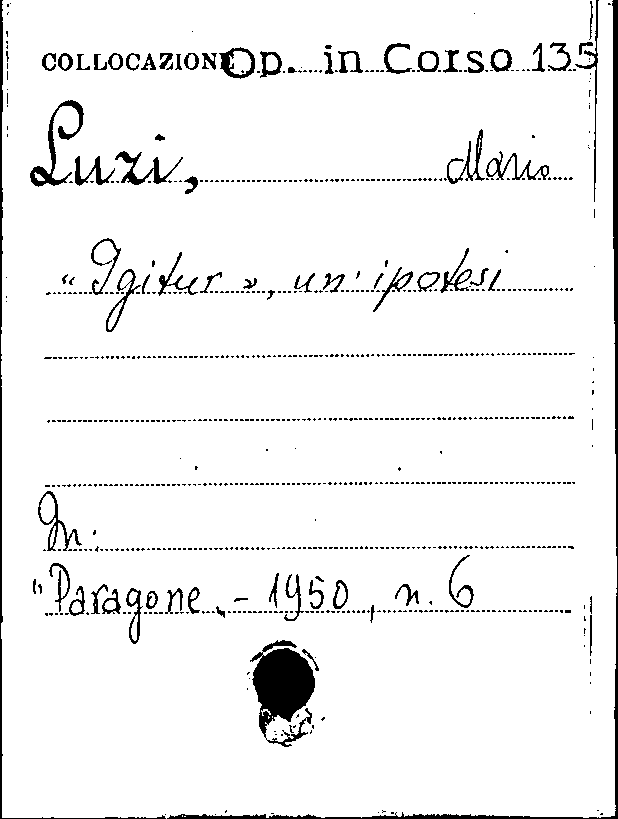 COLLOCAZIONE Op. in Corso 135
Luzi, Mario
"Igitur", un' ipotesi
In:
"Paragone„ - 1950, n. 6